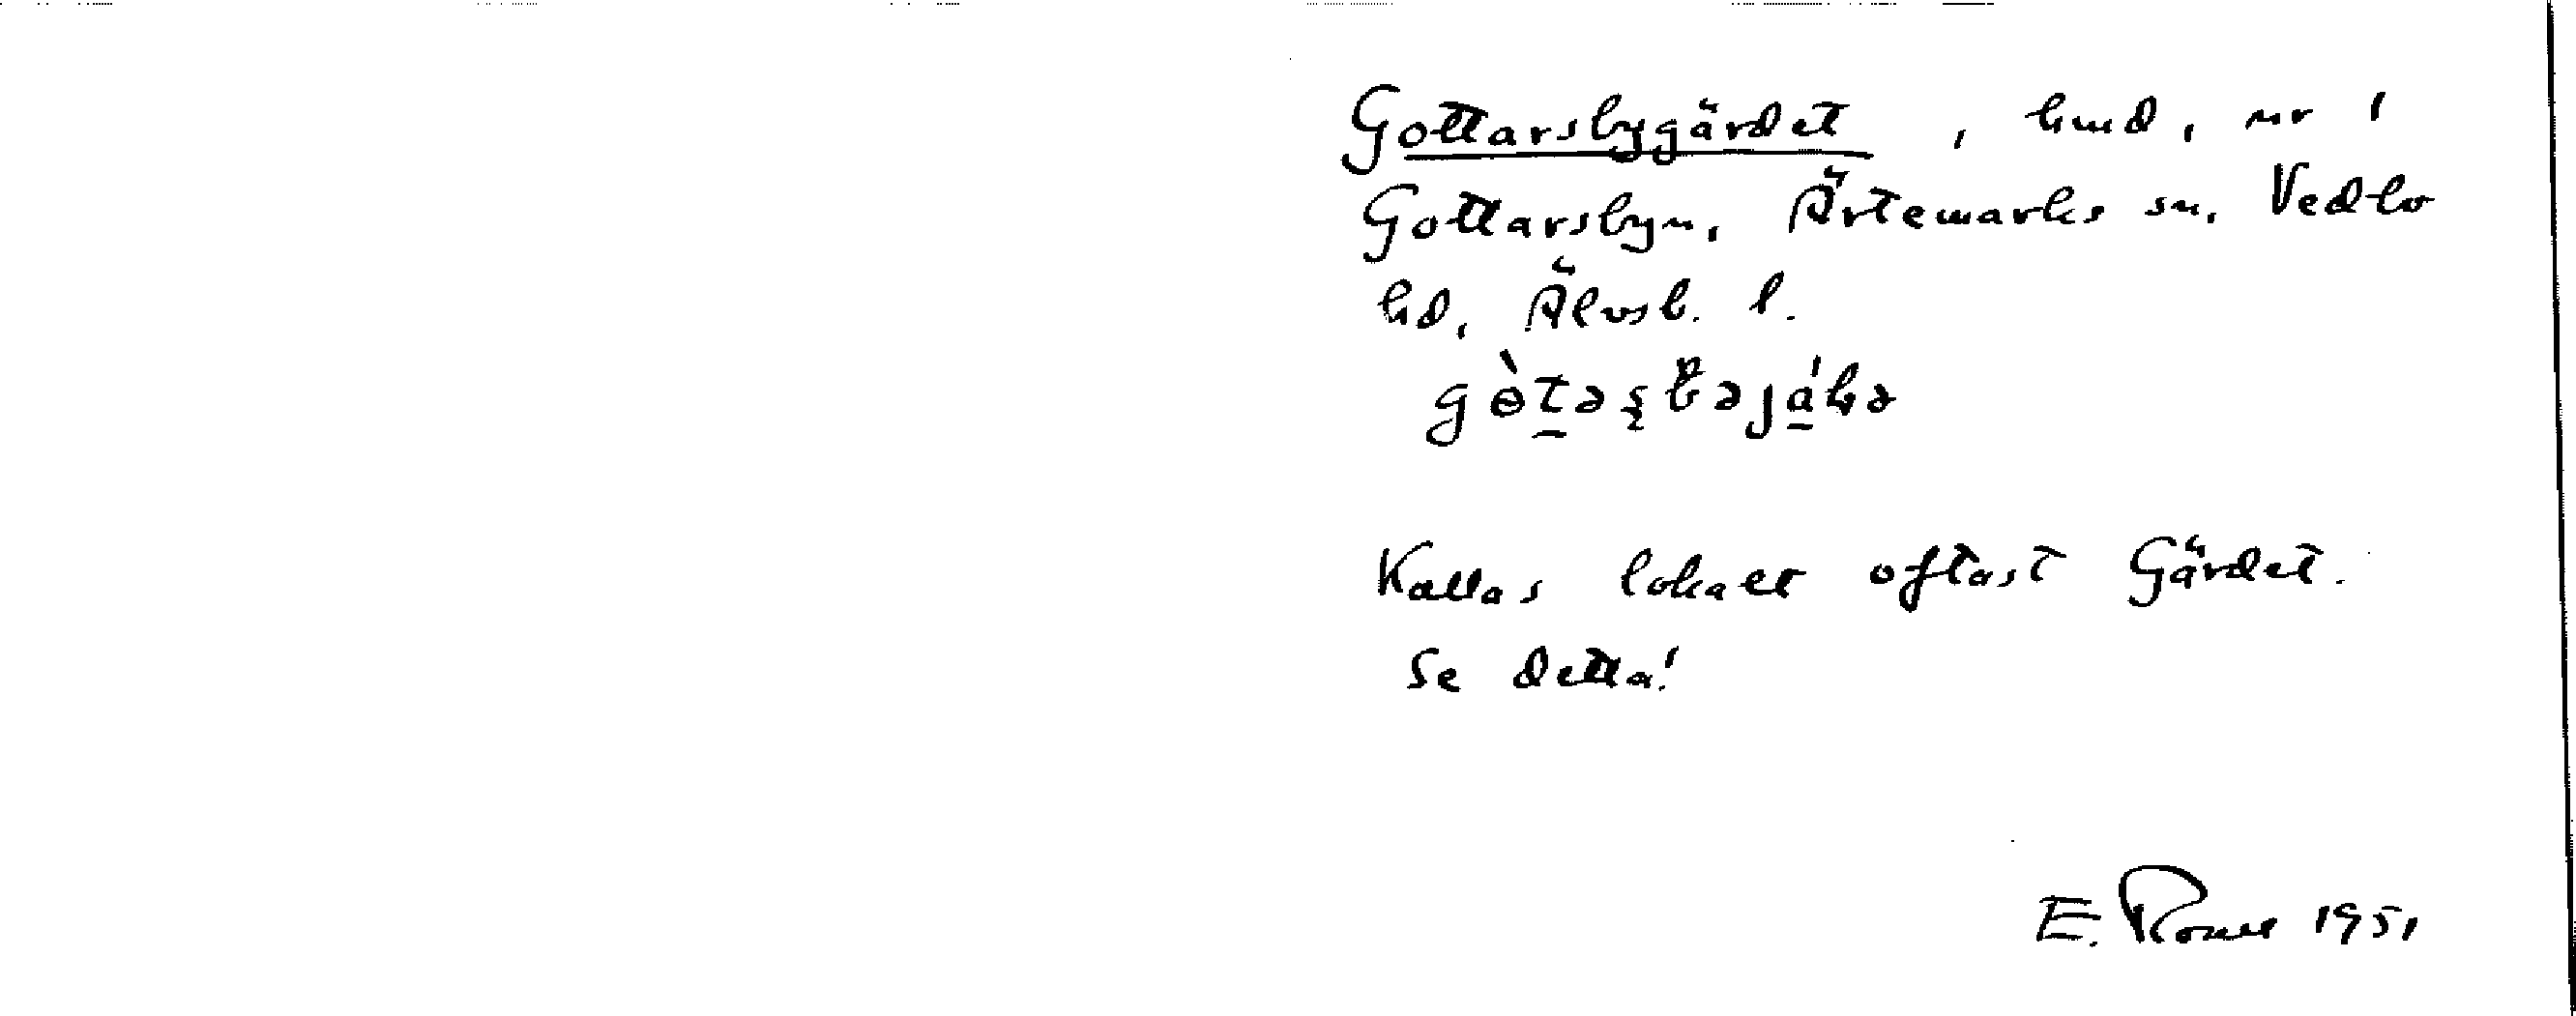 Gottarsbygärdet, hmd, nr 1
Gottarsbyn, Ärtemarks sn, Vedbo
hd, Älvsb. l.
Kallas lokalt oftast Gärdet.
Se detta!
E. 1951